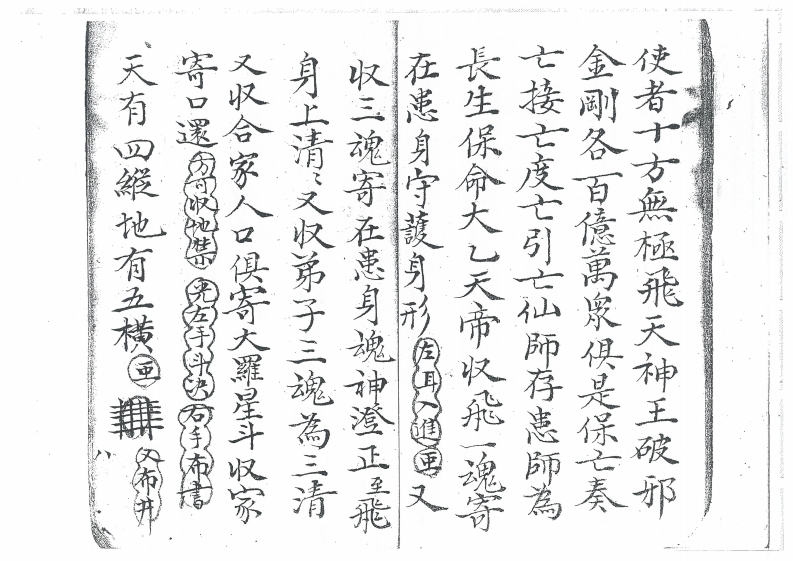 使者十方無極飛天神王破邪
金剛各百億萬眾俱是保亡奏
亡接亡度亡引亡仙師存患師為
長生保命大乙天帝收飛一魂寄
在患身守護身形左耳入進亜又
收三魂寄在患身魂神澄正至飛
身上清〻又収弟子三魂為三清
又収合家人口俱寄大羅星斗収家
寄口還方可収地禁先左手斗決右手布書
天有四縱地有五橫亜又布井